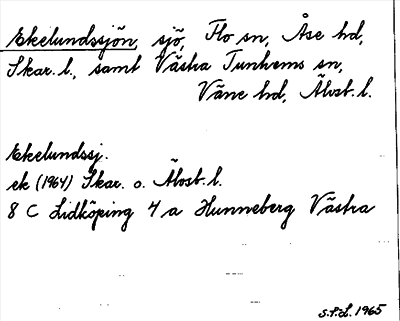 Ekelundssjön, sjö, Flo sn, Åse hd,
Skar. l., samt Västra Tunhems sn,
Väne hd, Älvsb. l.
Ekelundssj.
ek (1964) Skar. o. Älvsb. l.
8 C Lidköping 4 a Hunneberg Västra
S.P.L. 1965